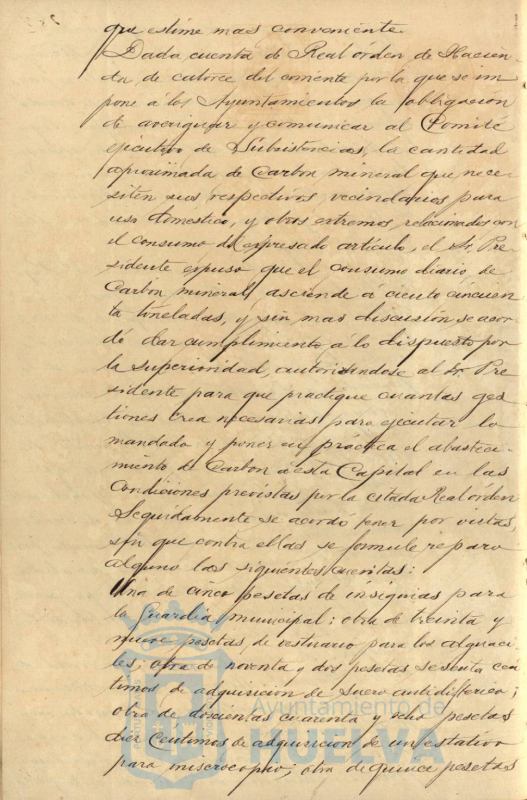 que estime mas conveniente.
Dada cuenta de Real orden de Hacien-
da, de catorce del corriente por la que se im
pone a los Ayuntamientos la obligación
de averiguar y comunicar al Comité
ejecutivo de Subsistencias, la cantidad
aproximada de Carbón mineral que nece-
siten sus respectivos vecindarios para
uso doméstico, y otros extremos relacionados con
el consumo del expresado artículo, el Sr. Pre-
sidente expuso que el consumo diario de
Carbón mineral, asciende á ciento cincuen
ta toneladas, y sin mas discusión se acor-
dó dar cumplimiento á lo dispuesto por
la superioridad autorizandose al Sr. Pre
sidente para que practique cuantas ges
tiones crea necesarias para ejecutar lo
mandado y poner en práctica el abasteci-
miento de Carbon á esta Capital en las
Condiciones previstas por la citada Real orden
Seguidamente se acordó tener por vistas,
sin que contra ellas se formule reparo
alguno las siguientes cuentas:
Una de cinco pesetas de insignias para
la Guardia municipal; otra de treinta y
nueve pesetas, de vestuario para los alguaci-
les; otra de noventa y dos pesetas sesenta cen
timos de adquisicion de suero antidifterico;
otra de doscientas cuarenta y ocho pesetas
diez Centimos de adquisicion de un estativo
para microscopio; otra de quince pesetas
Ayuntamiento de
HUELVA